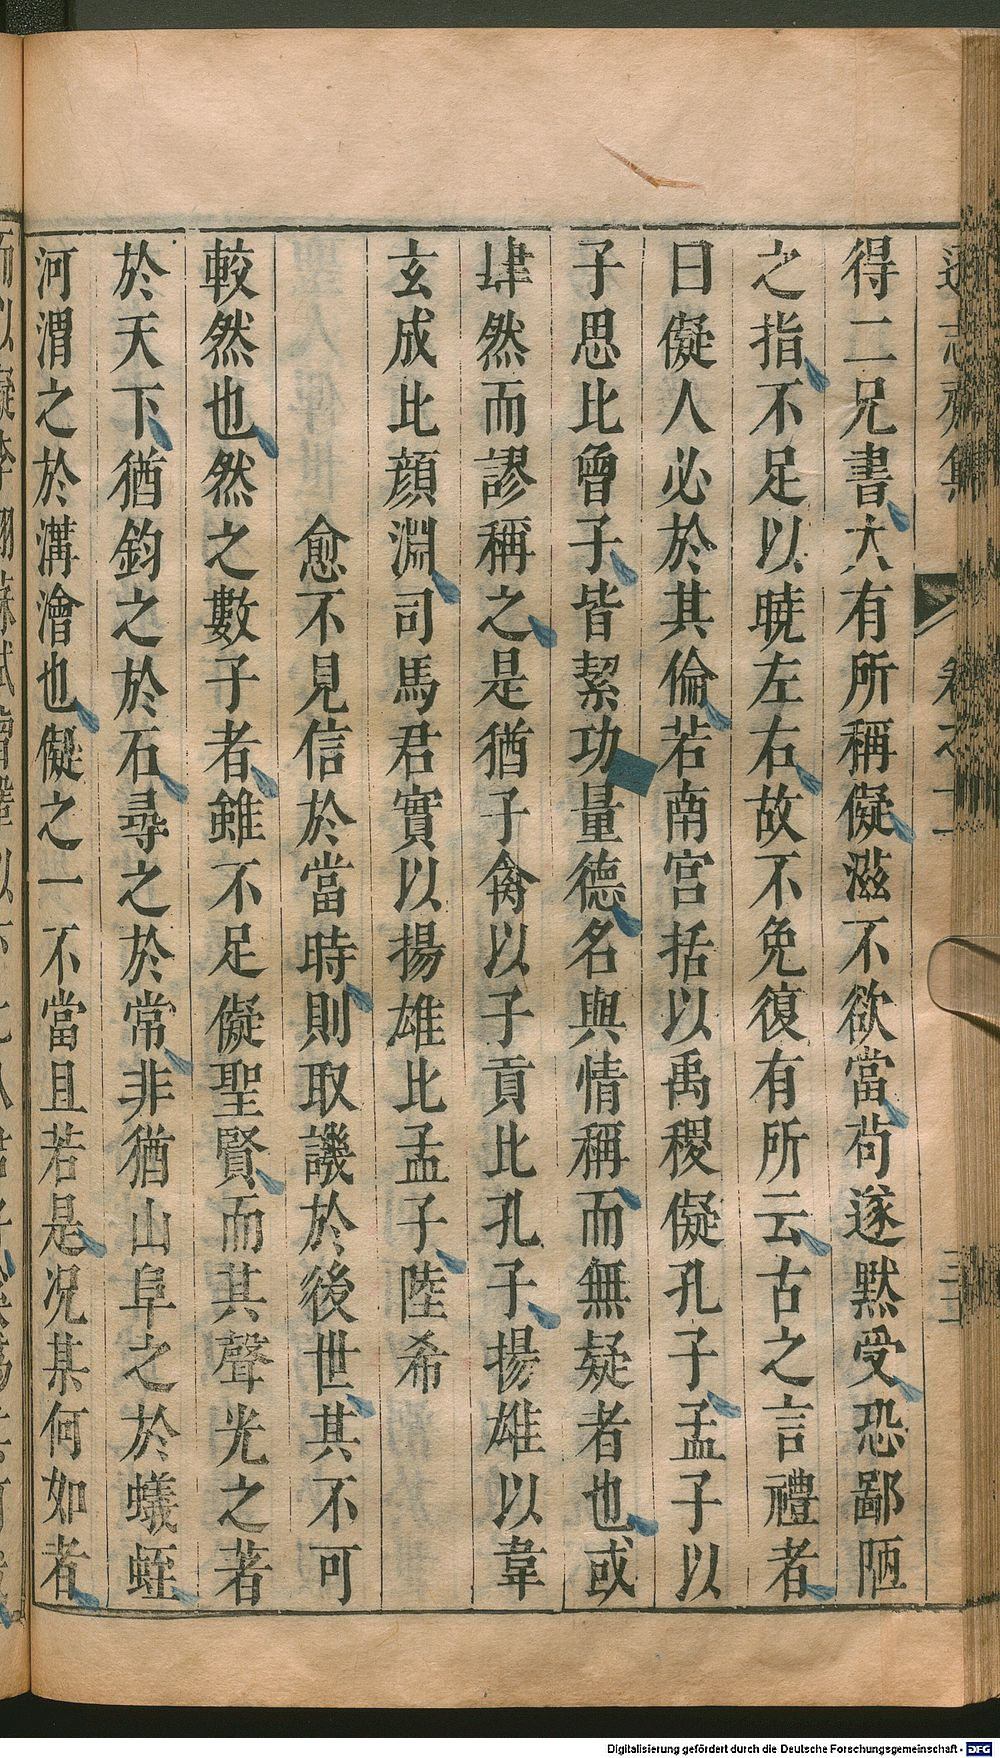 得二兄書大有所稱儗滋不欲當茍遂默受恐鄙陋
之指不足以曉左右故不免復有所云古之言禮者
曰儗人必於其倫若南宮括以禹稷儗孔子孟子以
子思比曾子皆絜功量德名與情稱而無疑者也或
肆然而謬稱之是猶子禽以子貢比孔子揚雄以韋
玄成比顏淵司馬君實以揚雄比孟子陸希
愈不見信於當時則取譏於後世其不可
較然也然之數子者雖不足儗聖賢而其聲光之著
於天下猶鈞之於石尋之於常非猶山阜之於蟻蛭
河渭之於溝澮也儗之一不當且若是况某何如者
志齋集 卷之十一
Digitalisierung gefördert durch die Deutsche Forschungsgemeinschaft - DFG